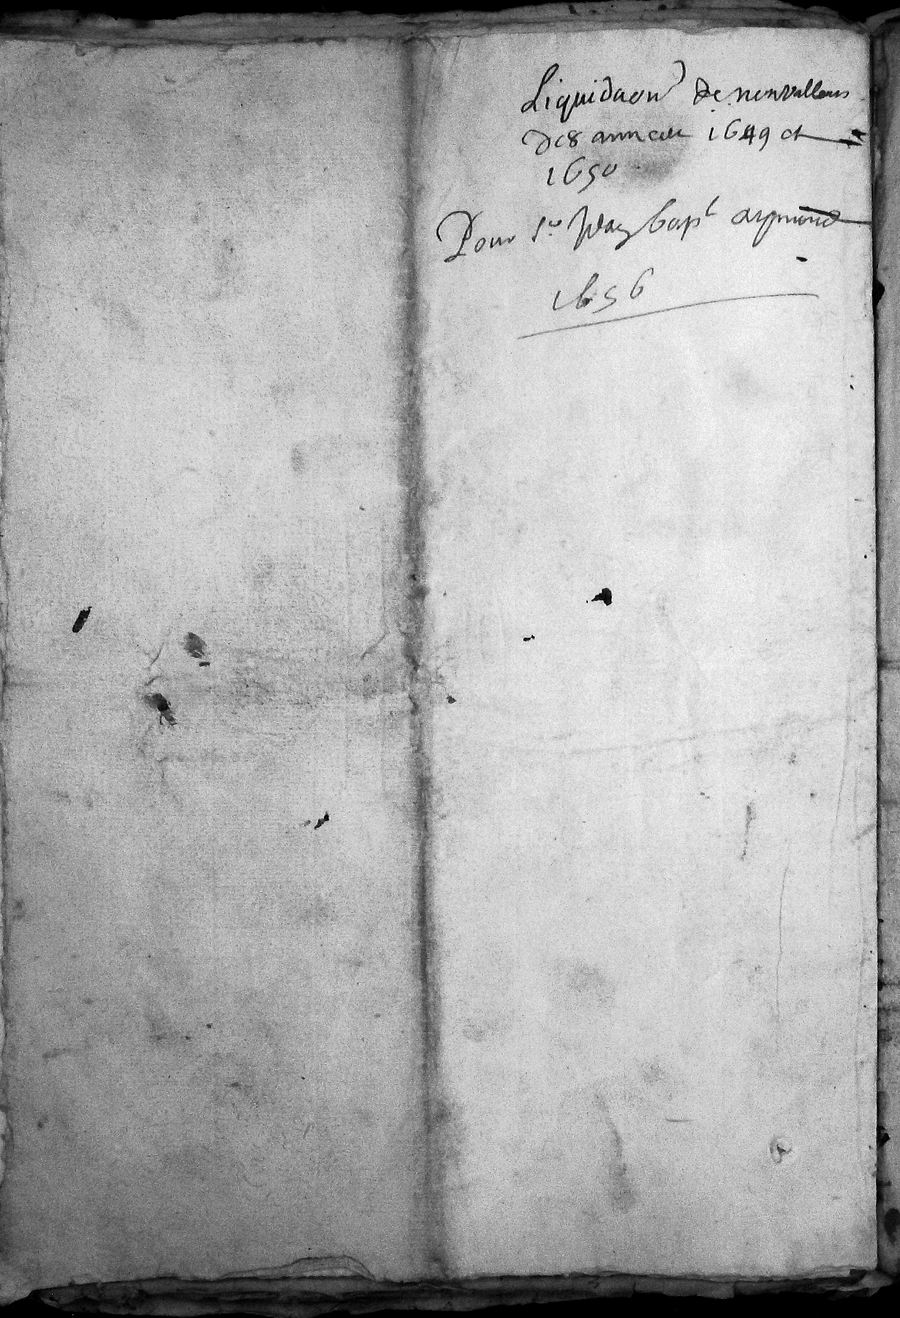 Liquidaon de nonvalleurs
des annees 1649 et
1650
Pour sr Jean bapt aymard
1656